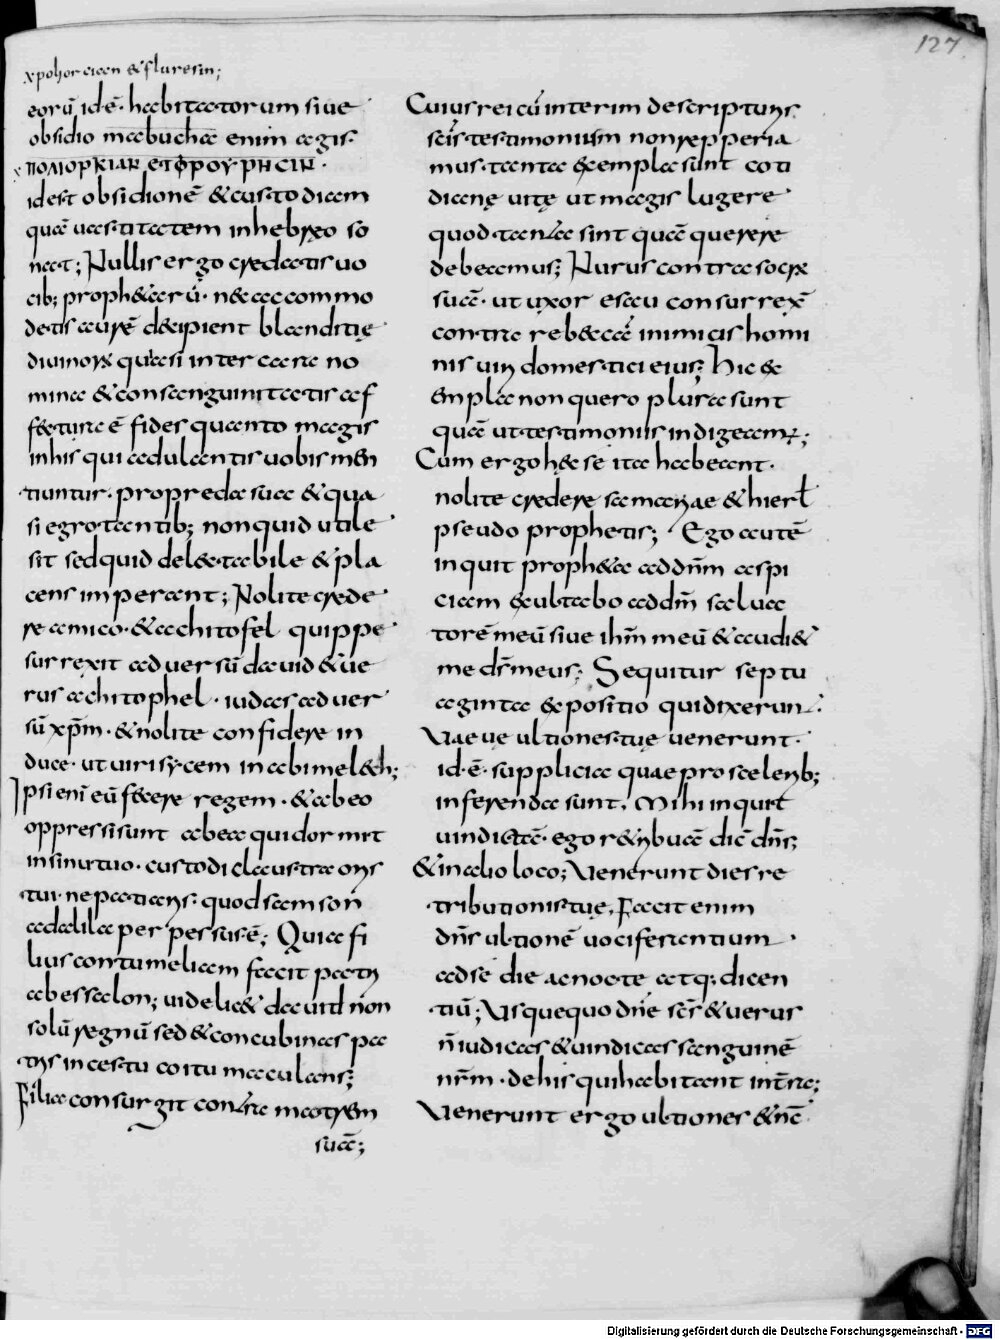 127
χpoliorcian & fluresin;
eorū id ē· habitatorum siue
obsidio mabucha enim agis
ΠΟΛΙΟΡΚΙΑΝ ΕΤ ΦΡΟΥΡΗCΙΝ·
idest obsidionē & custodiam
quā uastitatem in hebręo so
nat; Nullis ergo credatis uo
cib; proph&arū· n& accommo
detis aurē decipient blanditię
diuinorū quasi inter cara no
mina & consanguinitatis af
f&tura ē fides quanto magis
in his qui adulantis uobis men
tiuntur· pro preda sua & qua
si egrotantib; non quid utile
sit sed quid del&tabile & pla
cens imperant; Nolite crede
re amico· & achitofel quippe
surrexit aduersū dauid & ue
rus achitophel· iudas aduer
sū xp̄m· & nolite confidere in
duce· ut uiri sycem in abimelech;
Ipsi eni eū fecere regem· & ab eo
oppressi sunt ab ea qui dormit
in sinu tuo· custodi claustra oris
tui· ne patiaris quod samson
a dalila perpersus ē; Quia fi
lius contumeliam facit patri
abessalon; uidelic& dauid non
solū regnū sed & concubinas pa
tris incestu coitu maculans;
Filia consurgit contra matrem
suā;
Cuius rei cū interim de scripturis
scīs testimonium non repperia
mus· tanta exempla sunt coti
dianę uitę ut magis lugere
quod tanta sint quā querere
debeamus; Nurus contra socrū
suā· ut uxor esau consurrex̄
contra rebeccā inimici hominis
nis uiri domestici eius; Hic ex
empla non quero plura sunt
quā ut testimoniis indigeam̄;
Cum ergo h&c se ita habeant·
nolite credere samariae & hierl̄
pseudo prophetis; Ego autē
inquit proph&a ad dn̄m aspi
ciam exultabo ad dm̄ salua
torē meū siue ihm̄ meū & audi&
me ds̄ meus; Sequitur septu
aginta expositio qui dixerunt·
Vae uę ultiones tuę uenerunt·
id·ē· supplicia quae pro scelerib;
inferenda sunt· Mihi inquit
uindictā· ego retribuā dic̄ dn̄s;
& in alio loco; Venerunt dies re
tributionis tuę, Faciet enim
dn̄s ultionē uociferantium·
ad se die ac nocte atq; dicen
tiū; Vsquequo dn̄e sc̄s & uerus
n̄ iudicas & uindicas sanguinē
nr̄m· de his qui habitant in t̄ra;
Venerunt ergo ultiones & n̄c
Digitalisierung gefördert durch die Deutsche Forschungsgemeinschaft - DFG